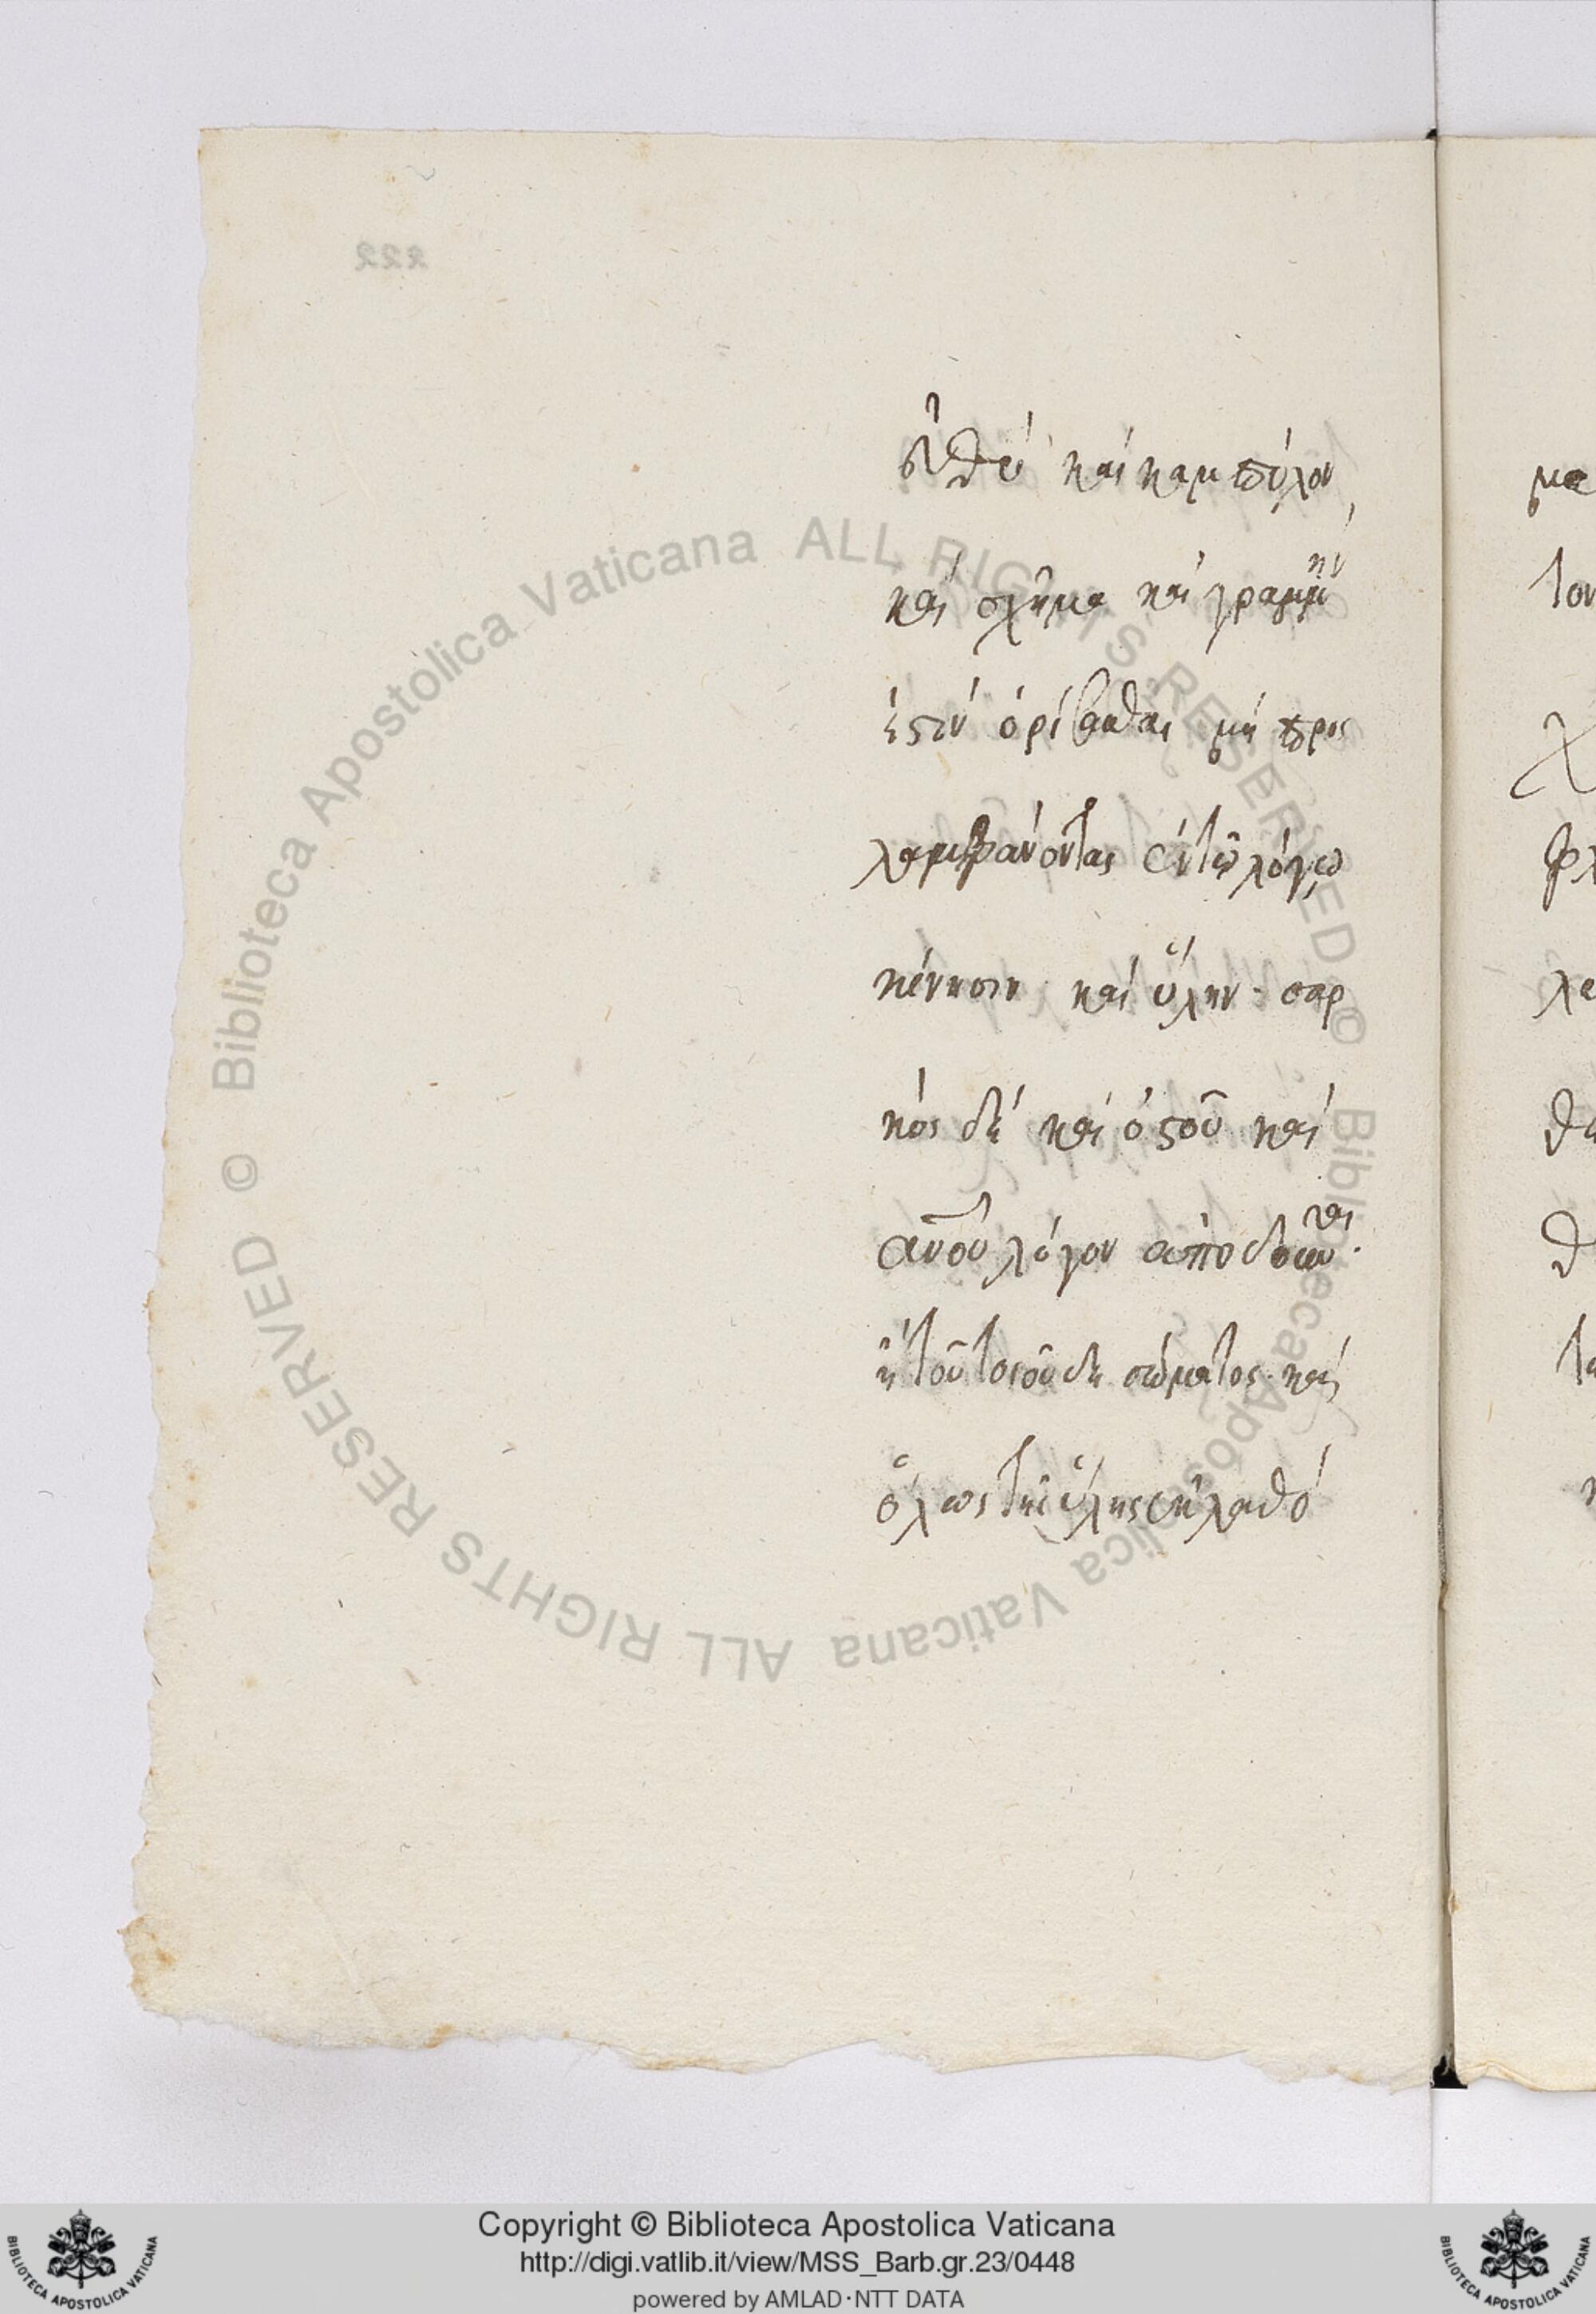 222
εὐθὺ καὶ καμπύλον
καὶ σχῆμα καὶ γραμμὴν
ἔστιν ὁρίσασθαι μὴ προς
λαμβάνοντας ἐν τῷ λόγω
κίνησιν καὶ ὕλην· σαρ
κὸς δὲ καὶ ὀστοῦ καὶ
λόγον
ἢ τοῦ τοιοῦδε σώματος καὶ
ὅλως τῆς ὕλης
μα
τον
φλ
θα
© Biblioteca Apostolica Vaticana ALL RIGHTS RESERVED
© Biblioteca Apostolica Vaticana ALL RIGHTS RESERVED
Copyright © Biblioteca Apostolica Vaticana
http://digi.vatlib.it/view/MSS_Barb.gr.23/0448
powered by AMLAD·NTT DATA
BIBLIOTECA APOSTOLICA VATICANA
BIBLIOTECA APOSTOLICA VATICANA